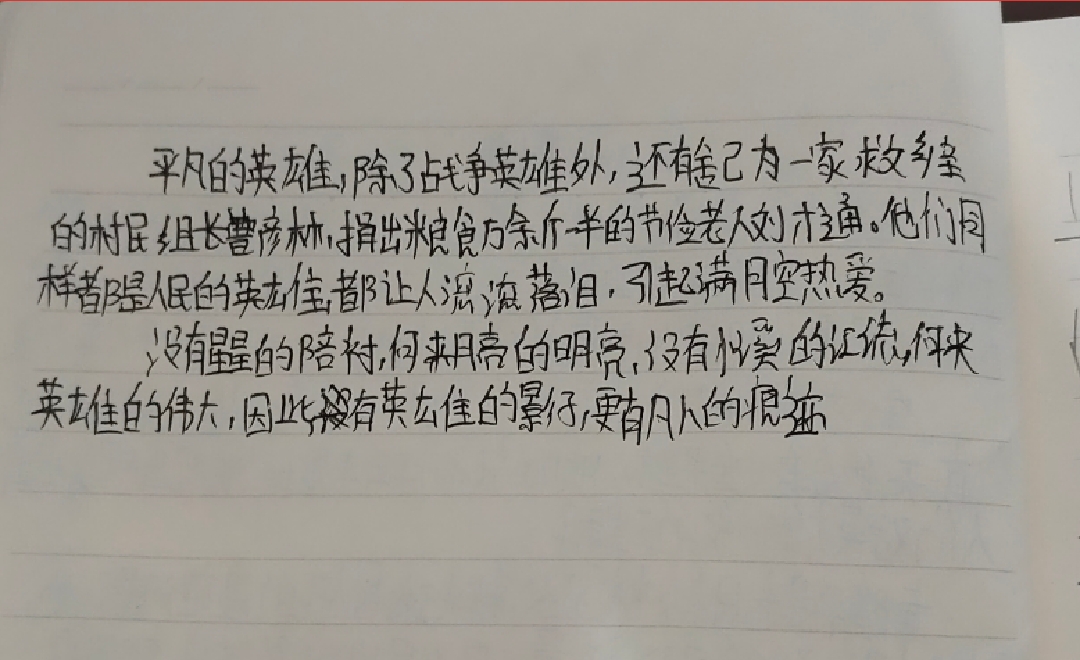 平凡的英雄,除了战争英雄外,还有舍己为一家救乡垒
的村民组长曹彦林,捐出粮食万余斤半的节俭老人刘才通。他们同
样都是人民的英雄,都让人滚滚落泪,引起满月空热爱。
没有星星的陪衬,何来月亮的明亮,没有的让依,何来
英雄的伟大,因此没有英雄的影仔,更有凡人的痕迹